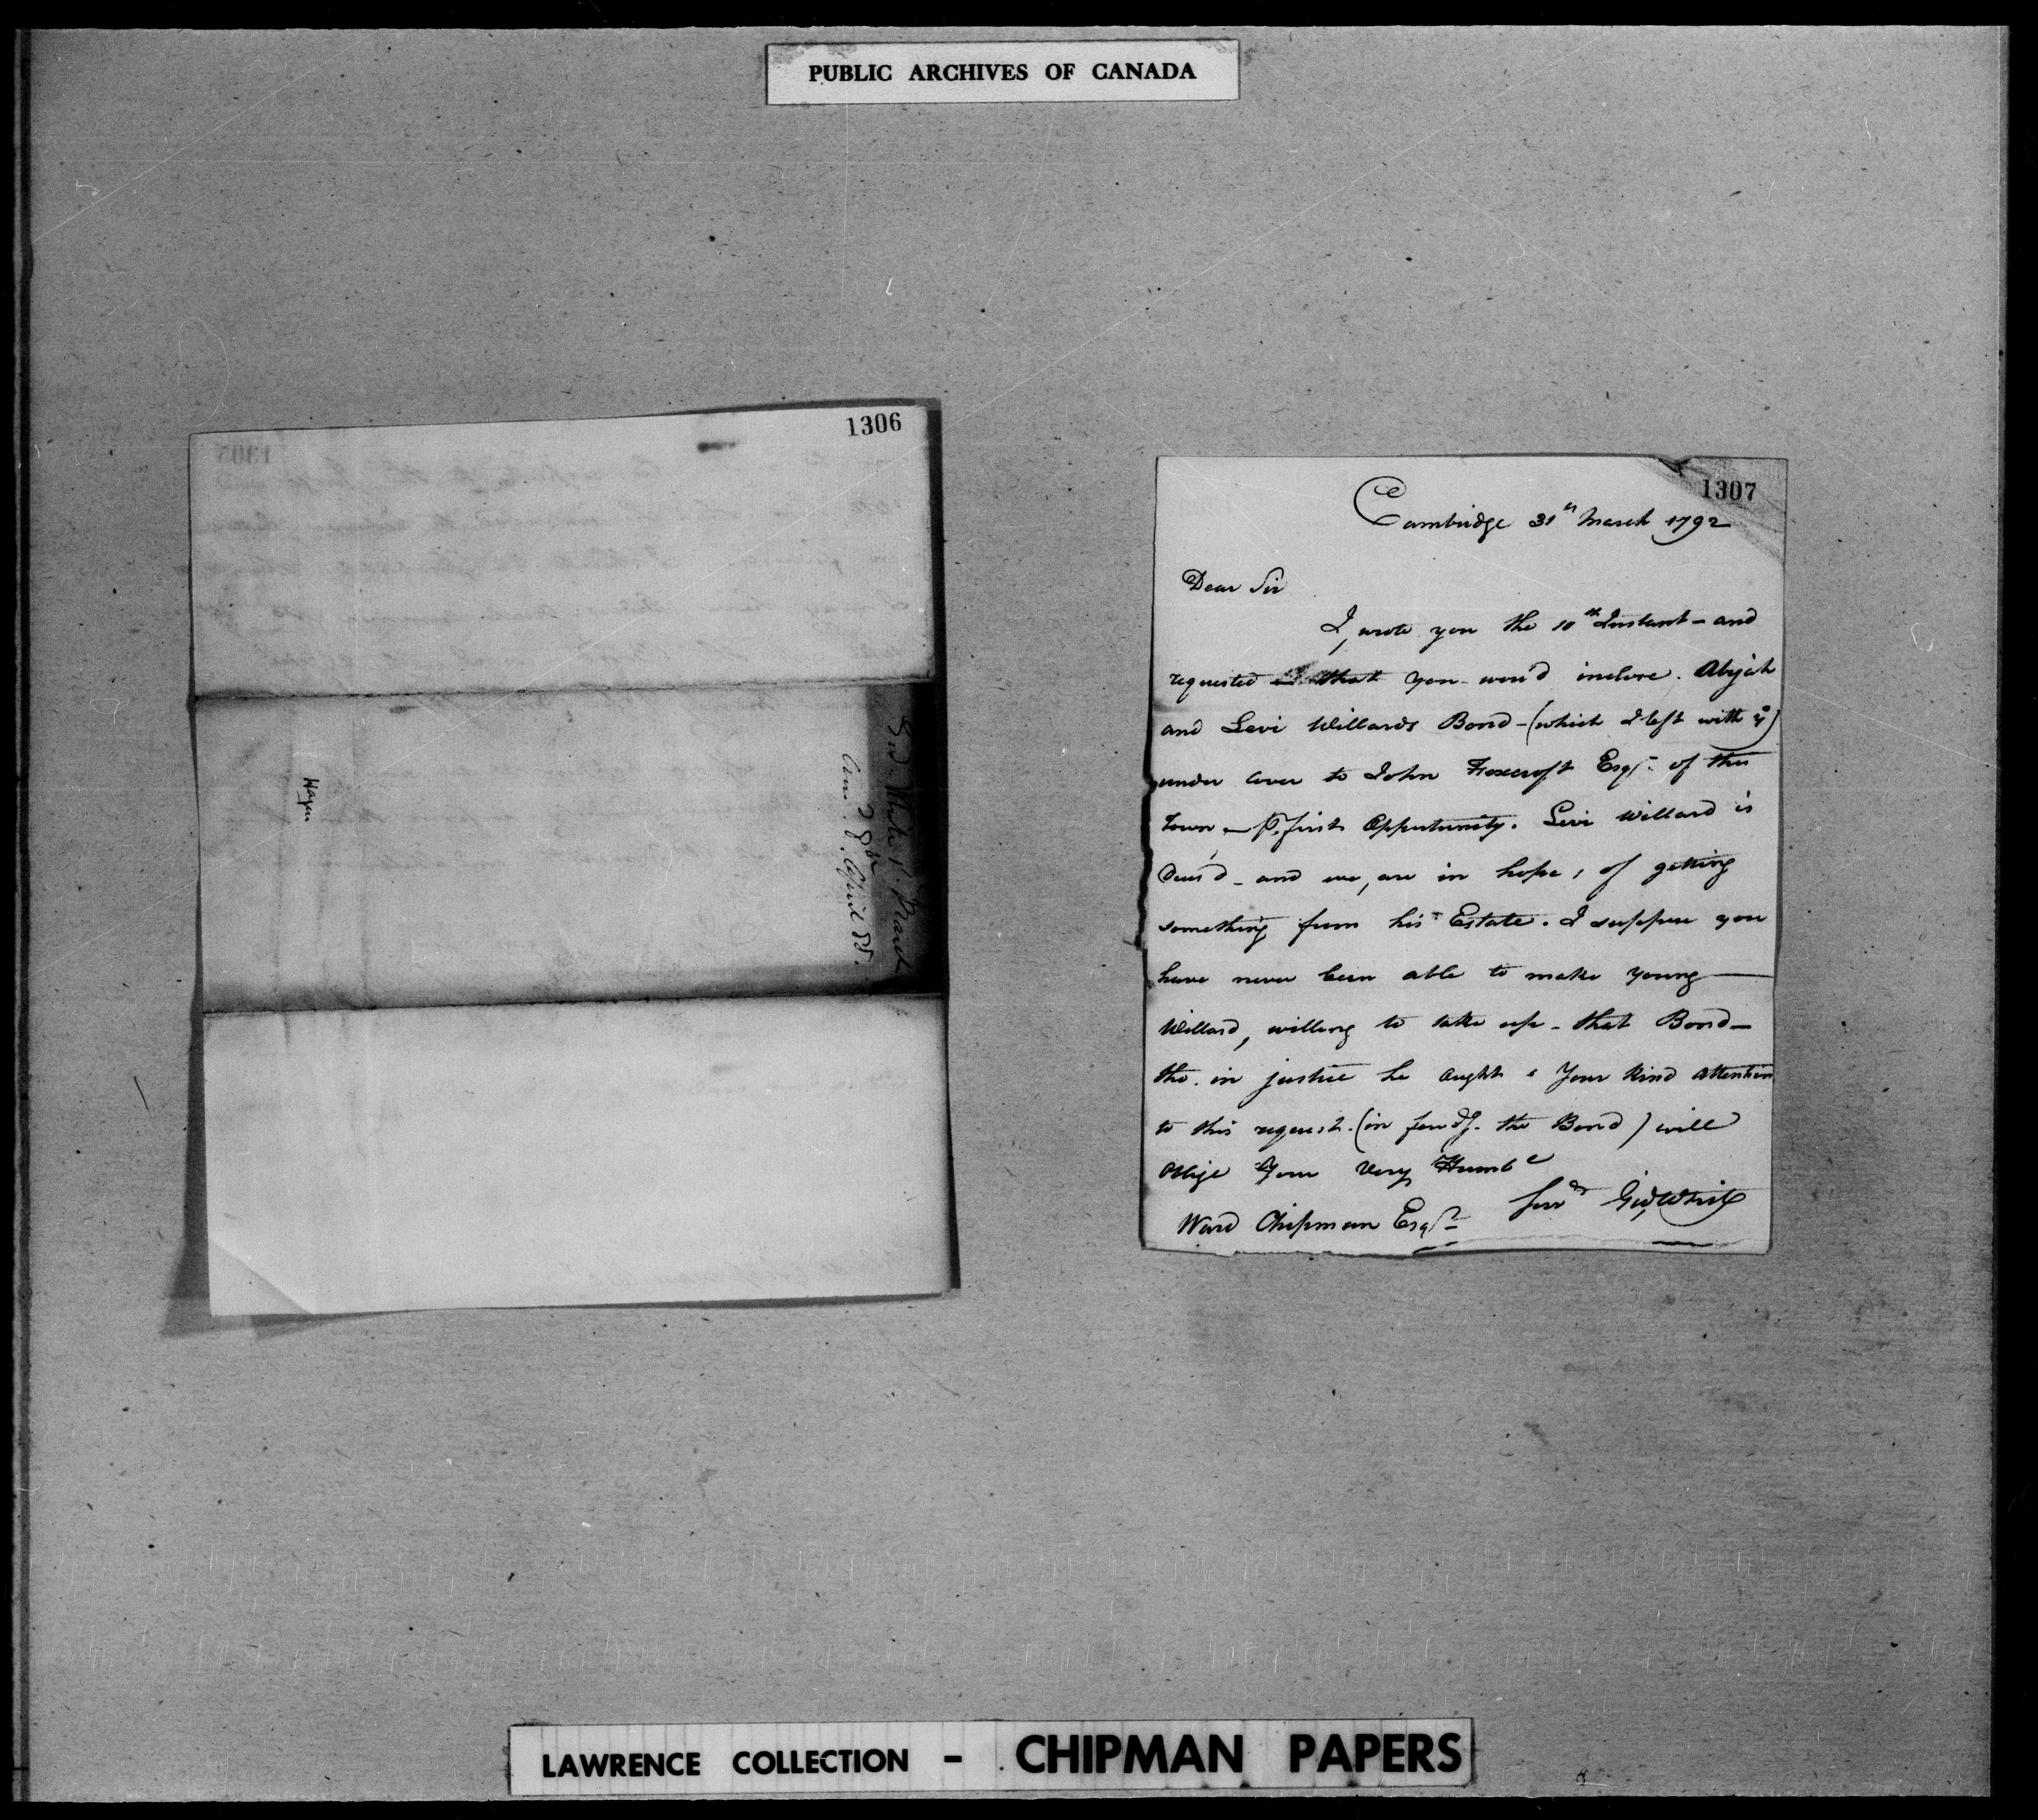 PUBLIC ARCHIVES OF CANADA
1306
Gid. White 1. March
Ans.d 28th April 88.
1307
Cambridge 31st March 1792
Dear Sir
I, wrote you the 10th Instant - and
requested that you wou'd inclose. Abijah
and Levi Willards Bond - (which I left with y)
under cover to John Foxcroft Esqr. of this
Town - Pr. first Opportunity. Levi Willard is
Deces'd - and we, are in hope, of getting
something from his Estate. I suppose you
have never been able to make young
Willard, willing to take up - that Bond -
tho. in justice he ought. Your kind attention
to this request. (in send'g. the Bond) will
oblige Your Very Humbe
Servt Gid, White
Ward Chipman Esqr.
LAWRENCE COLLECTION - CHIPMAN PAPERS